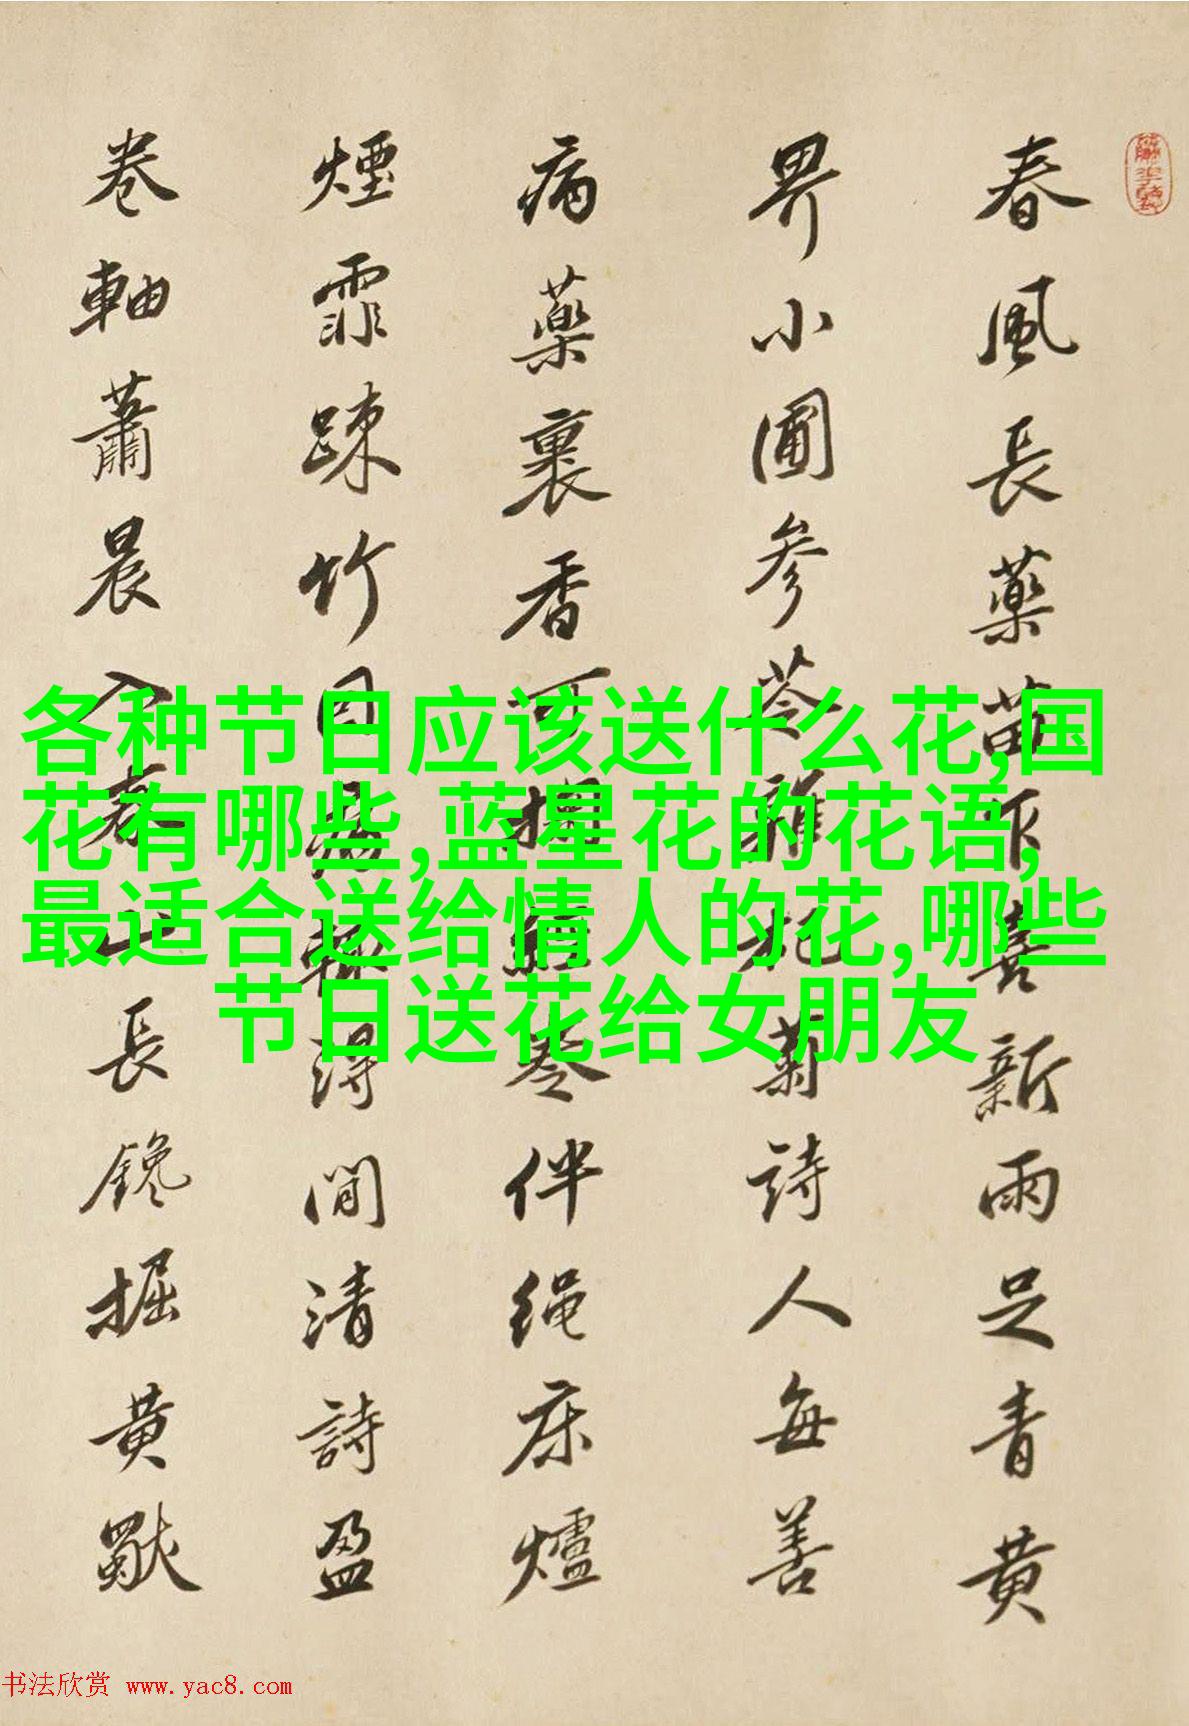 春風長藥苗昨喜新雨足青黃
界小圃参苓雜杞菊詩人每善
病藥裹香可掬經卷伴绳床爐
煙霏踈竹得閒清詩盈
卷軸蕭晨入春山長镵掘黄獨
各种节日应该送什么花,国
花有哪些,蓝星花的花语,
最适合送给情人的花,哪些
节日送花给女朋友
书法欣赏 www.yac8.com